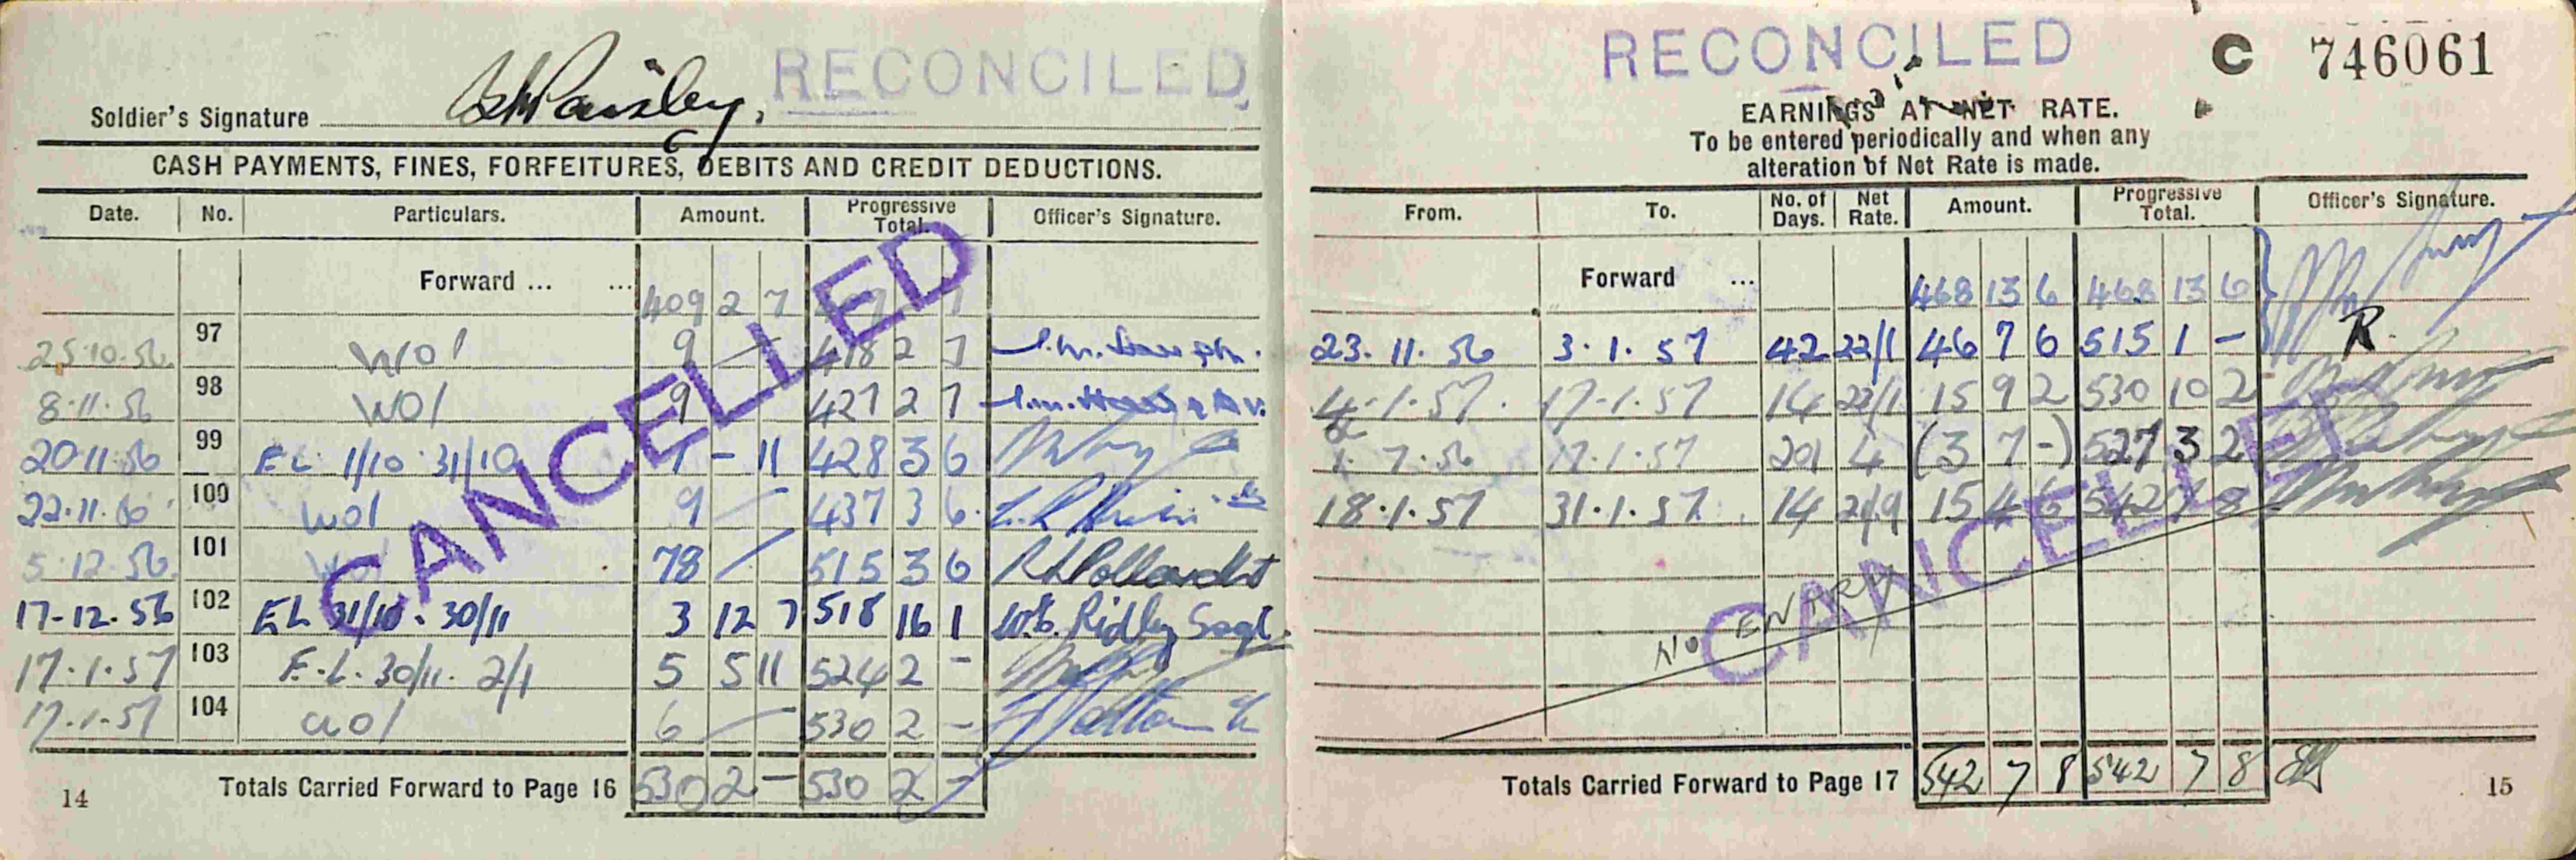 RECONCILED
Soldier's Signature Paisley.
CASH PAYMENTS, FINES, FORFEITURES, DEBITS AND CREDIT DEDUCTIONS.
Date. No. Particulars. Amount. Progressive Total. Officer's Signature.
Forward ... ... 409 2 7
25.10.56 97 WOL 9 — 418 2 7
8.11.56 98 WOL 9 427 2 7
20.11.56 99 EL 1/10 31/10 1 - 11 428 3 6
22.11.56 100 WOL 9 — 437 3 6
5.12.56 101 WOL 78 — 515 3 6
17-12.56 102 EL 31/10 - 30/11 3 12 7 518 16 1 Ridley Sgt.
17.1.57 103 E.L. 30/11. 2/1 5 5 11 524 2 -
17.1.57 104 WOL 6 — 530 2 -
Totals Carried Forward to Page 16 530 2 - 530 2 -
14
CANCELLED
RECONCILED
C 746061
EARNINGS AT NET RATE.
To be entered periodically and when any
alteration of Net Rate is made.
From. To. No. of Days. Net Rate. Amount. Progressive Total. Officer's Signature.
Forward ... 468 13 6 468 13 6
23.11.56 3.1.57 42 22/1 46 7 6 515 1 - R.
4.1.57. 17.1.57 14 22/1 15 9 2 530 10 2
7.56 17.1.57 201 4 (3 7 -) 527 3 2
18.1.57 31.1.57. 14 21/9 15 4 6 542 7 8
NO ENTRY
CANCELLED
Totals Carried Forward to Page 17 542 7 8 542 7 8
15